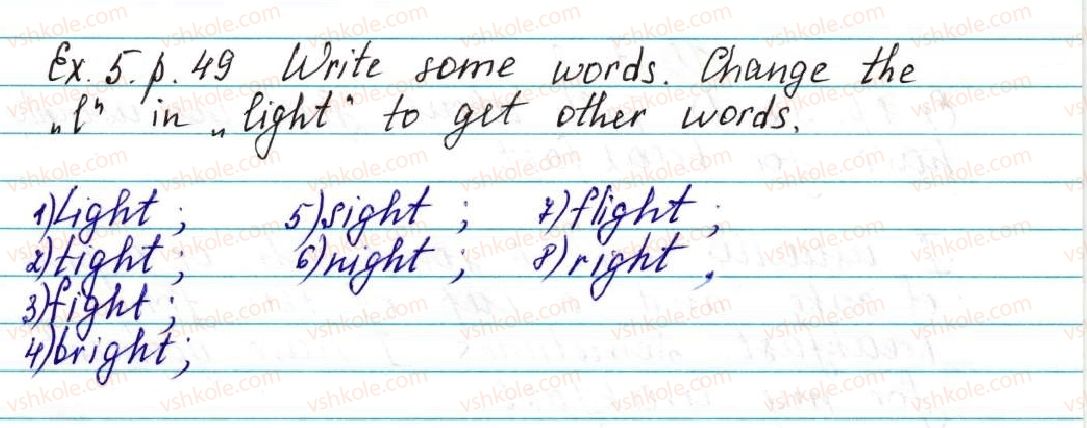 Ex. 5. p. 49 Write some words. Change the
„l" in „light" to get other words.
1) Light; 5) sight; 7) flight;
2) tight; 6) night; 8) right.
3) fight;
4) bright;